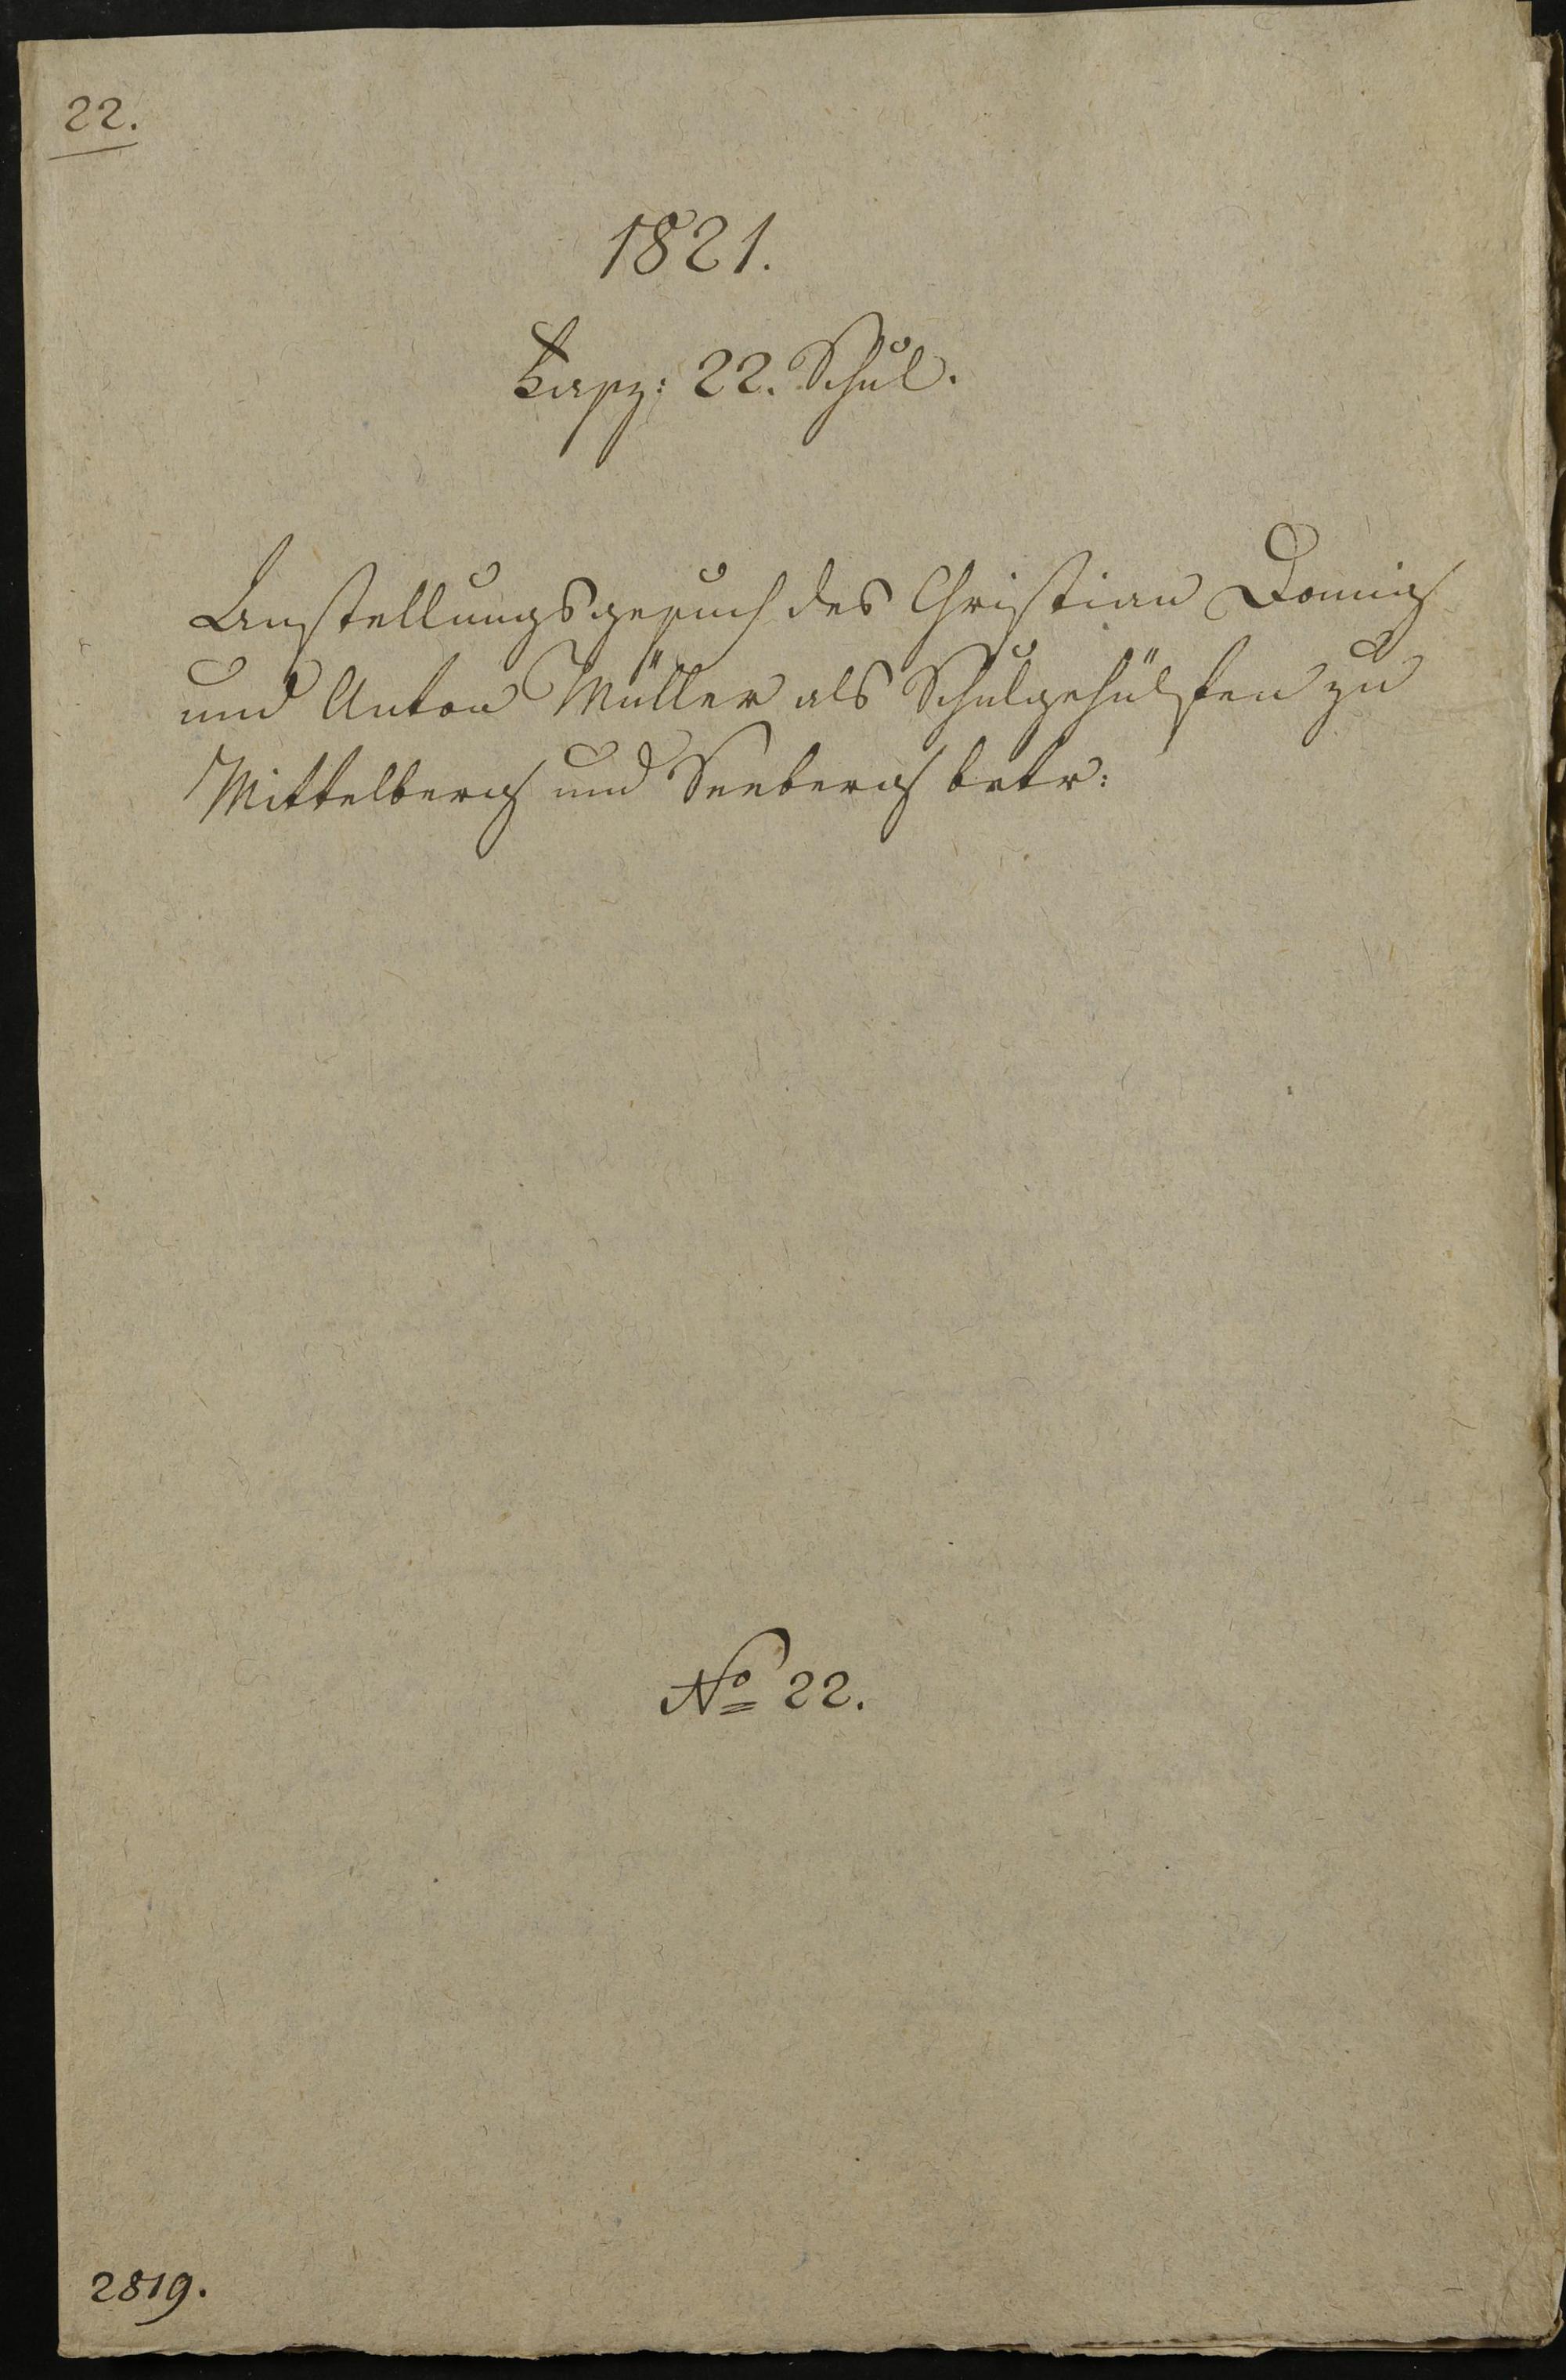 22.
1821.
Fasz: 22. Schul.
Anstellungsgesuch des Christian Domig
und Anton Müller als Schulgehülfen zu
Mittelberg und Seeberg betr:
No 22.
2819.